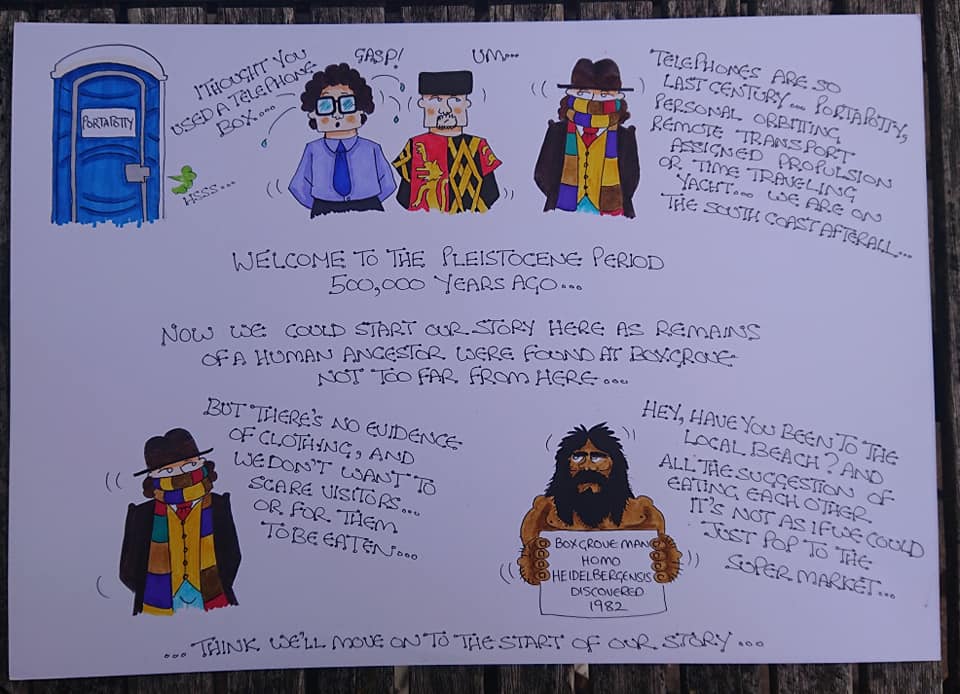 PORTAPOTTY
HSSS...
I THOUGHT YOU
USED A TELEPHONE
BOX....
GASP!
UM....
TELEPHONES ARE SO
LAST CENTURY... PORTAPOTTY,
PERSONAL ORBITING
REMOTE TRANSPORT
ASSIGNED PROPULSION
OR TIME TRAVELING
YACHT.... WE ARE ON
THE SOUTH COAST AFTERALL...
WELCOME TO THE PLEISTOCENE PERIOD
500,000 YEARS AGO...
NOW WE COULD START OUR STORY HERE AS REMAINS
OF A HUMAN ANCESTOR WERE FOUND AT BOXGROVE
NOT TOO FAR FROM HERE....
BUT THERE'S NO EVIDENCE
OF CLOTHING, AND
WE DON'T WANT TO
SCARE VISITORS...
OR FOR THEM
TO BE EATEN....
HEY, HAVE YOU BEEN TO THE
LOCAL BEACH? AND
ALL THE SUGGESTION OF
EATING EACH OTHER
IT'S NOT AS IF WE COULD
JUST POP TO THE
SUPER MARKET....
BOXGROVE MAN
HOMO
HEIDELBERGENSIS
DISCOVERED
1982
... THINK WE'LL MOVE ON TO THE START OF OUR STORY ...